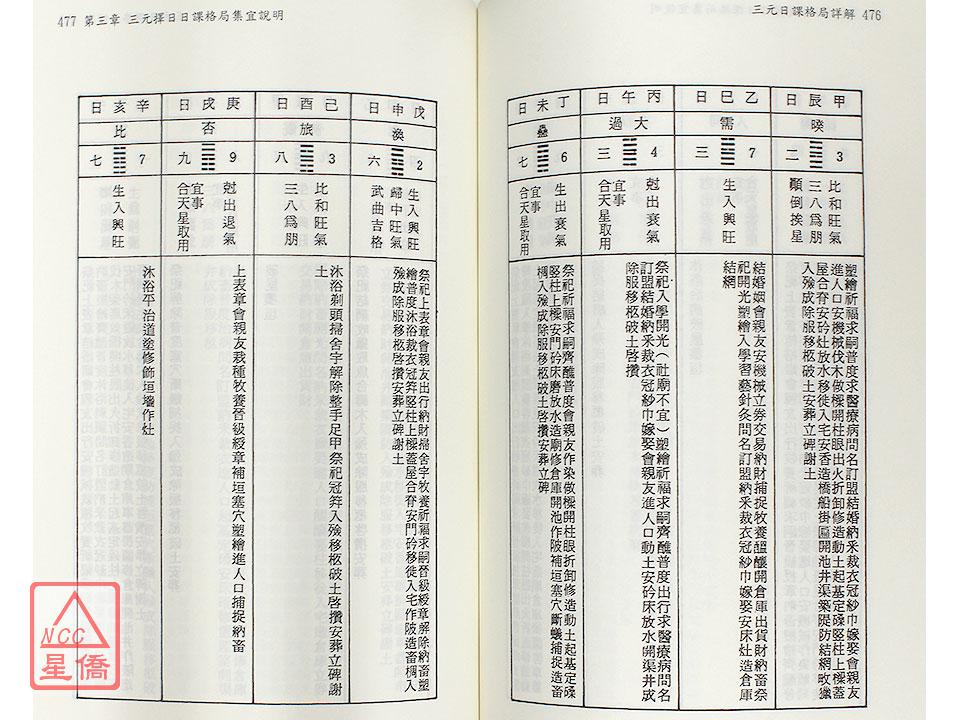 三元日課格局詳解 476
甲辰日
睽
3 二
比和旺氣
三八為朋
顛倒挨星
塑繪祈福求嗣普度求醫療病問名訂盟結婚納釆裁衣冠紗巾嫁娶會親友
進人口安機械伐木做樑開柱眼出火折卸修造動土起基定磉竪柱上樑蓋
屋合脊安砛灶放水移徙入宅安香造橋船掛匾開池井渠築隄防結網畋獵
入殮成除服移柩破土安葬立碑謝土
乙巳日
需
7 三
生入興旺
結婚姻會親友安機械立券交易納財捕捉牧養醞釀開倉庫出貨財納畜祭
祀開光塑繪入學習藝針灸問名訂盟納釆裁衣冠紗巾嫁娶安床灶造倉庫
結網
丙午日
大過
4 三
尅出衰氣
宜事
合天星取用
祭祀入學開光（社廟不宜）塑繪祈福求嗣齊醮普度出行求醫療病問名
訂盟結婚納釆裁衣冠紗巾嫁娶會親友進人口動土安砛床放水開渠井成
除服移柩破土啓攢
丁未日
蠱
6 七
生出衰氣
宜事
合天星取用
祭祀祈福求嗣齊醮普度會親友作染做樑開柱眼折卸修造動土起基定磉
竪柱上樑安門砛床磨放水造廟修倉庫開池作陂補垣塞穴斷蟻捕捉造畜
椆入殮成除服移柩破土啓攢安葬立碑
477 第三章 三元擇日日課格局集宜說明
戊申日
渙
2 六
生入興旺
歸中旺氣
武曲吉格
祭祀上表章會親友出行納財掃舍宇牧養祈福求嗣晉級綬章解除納畜塑
繪普度沐浴裁衣冠笄竪柱上樑蓋屋合脊安門砛移徙入宅作陂造畜椆入
殮成除服移柩啓攢安葬立碑謝土
己酉日
旅
3 八
比和旺氣
三八為朋
沐浴剃頭掃舍宇解除整手足甲祭祀冠笄入殮移柩破土啓攢安葬立碑謝
土
庚戌日
否
9 九
尅出退氣
宜事
合天星取用
上表章會親友栽種牧養晉級綬章補垣塞穴塑繪進人口捕捉納畜
辛亥日
比
7 七
生入興旺
沐浴平治道塗修飾垣墻作灶
NCC
星僑